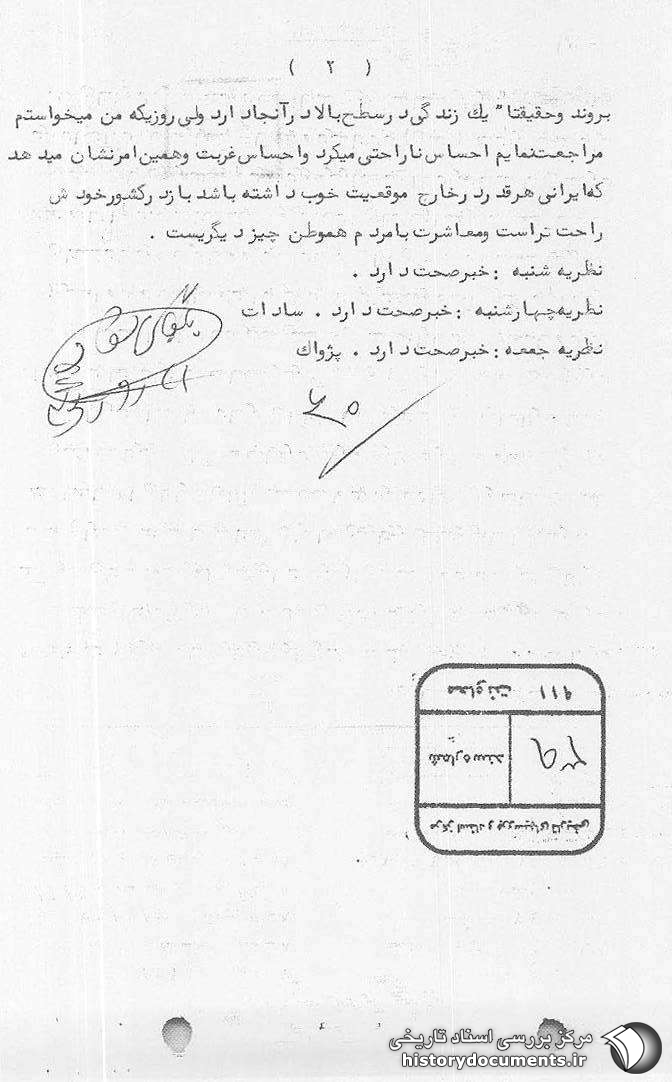 ( ۲ )
بروند وحقیقتا" یك زندگی در سطح بالا در آنجا دارد ولی روزیکه من میخواستم
مراجعت نمایم احساس ناراحتی میکرد واحساس غربت وهمین امر نشان میدهد
که ایرانی هر قدر در خارج موقعیت خوب داشته باشد باز در کشور خودش
راحت تر است ومعاشرت با مردم هموطن چیز دیگریست .
نظریه شنبه : خبر صحت دارد .
نظریه چهارشنبه : خبر صحت دارد . سادات
نظریه جمعه : خبر صحت دارد . پژواك
مرکز اسناد و بررسیهای تاریخی
شماره سند
۳۹
معاونت ۹۱۱
مرکز بررسی اسناد تاریخی
historydocuments.ir